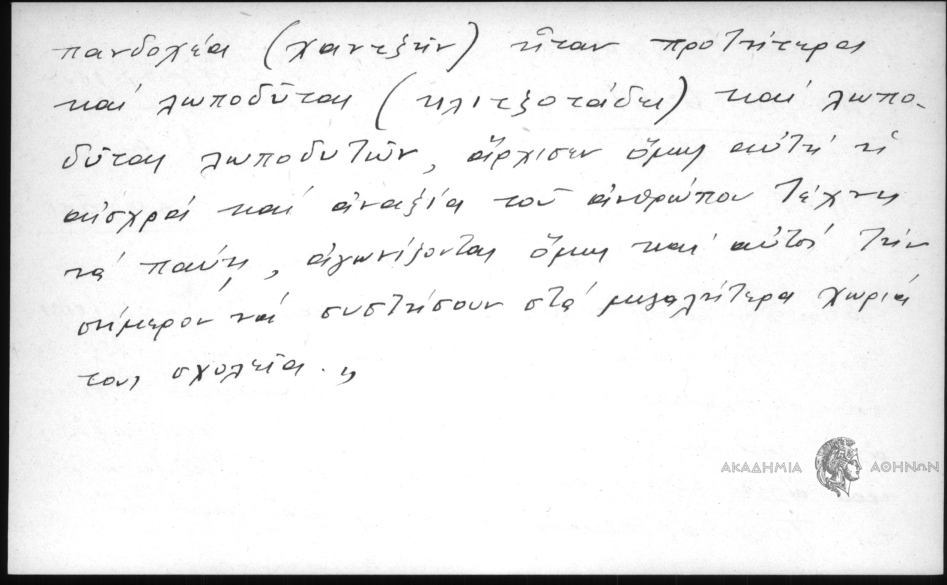 πανδοχέα (χαντζῆν) ἦταν προτήτερα
καί λωποδύται (κλιτζοτάδες) καί λωπο-
δῦται λωποδυτῶν, ἄρχισεν ὅμως αὐτή ἡ
αἰσχρά καί ἀναξία τοῦ ἀνθρώπου τέχνη
νά παύῃ, ἀγωνίζονται ὅμως καί αὐτοί τήν
σήμερον νά συστήσουν στά μεγαλήτερα χωριά
τους σχολεῖα.„
ΑΚΑΔΗΜΙΑ ΑΘΗΝΩΝ